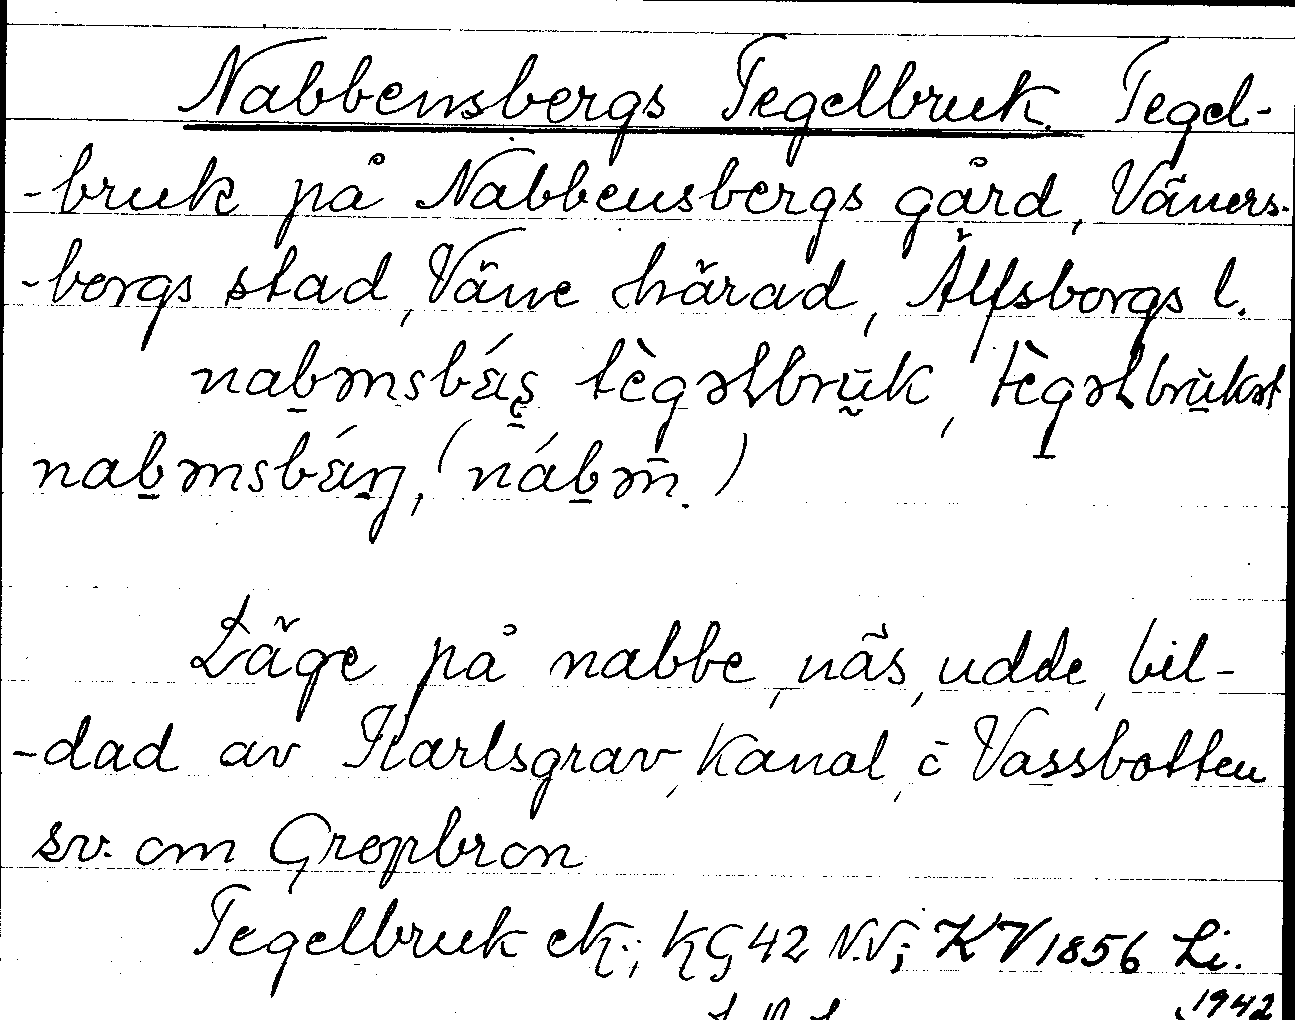 Nabbensbergs Tegelbruk. Tegel-
-bruk på Nabbensbergs gård, Väners-
-borgs stad, Väne härad, Älfsborgs l.
nab̲ənsbǽṣ tègəɫbrūk, tègəɫbrūkət
nab̲ənsbǽrj, (náb̲ən̄.)
Läge på nabbe, näs, udde, bil-
-dad av Karlsgrav, kanal, o Vassbotten
sv. om Gropbron
Tegelbruk ek.; KG 42 N.V; KV 1856 Li.
1942